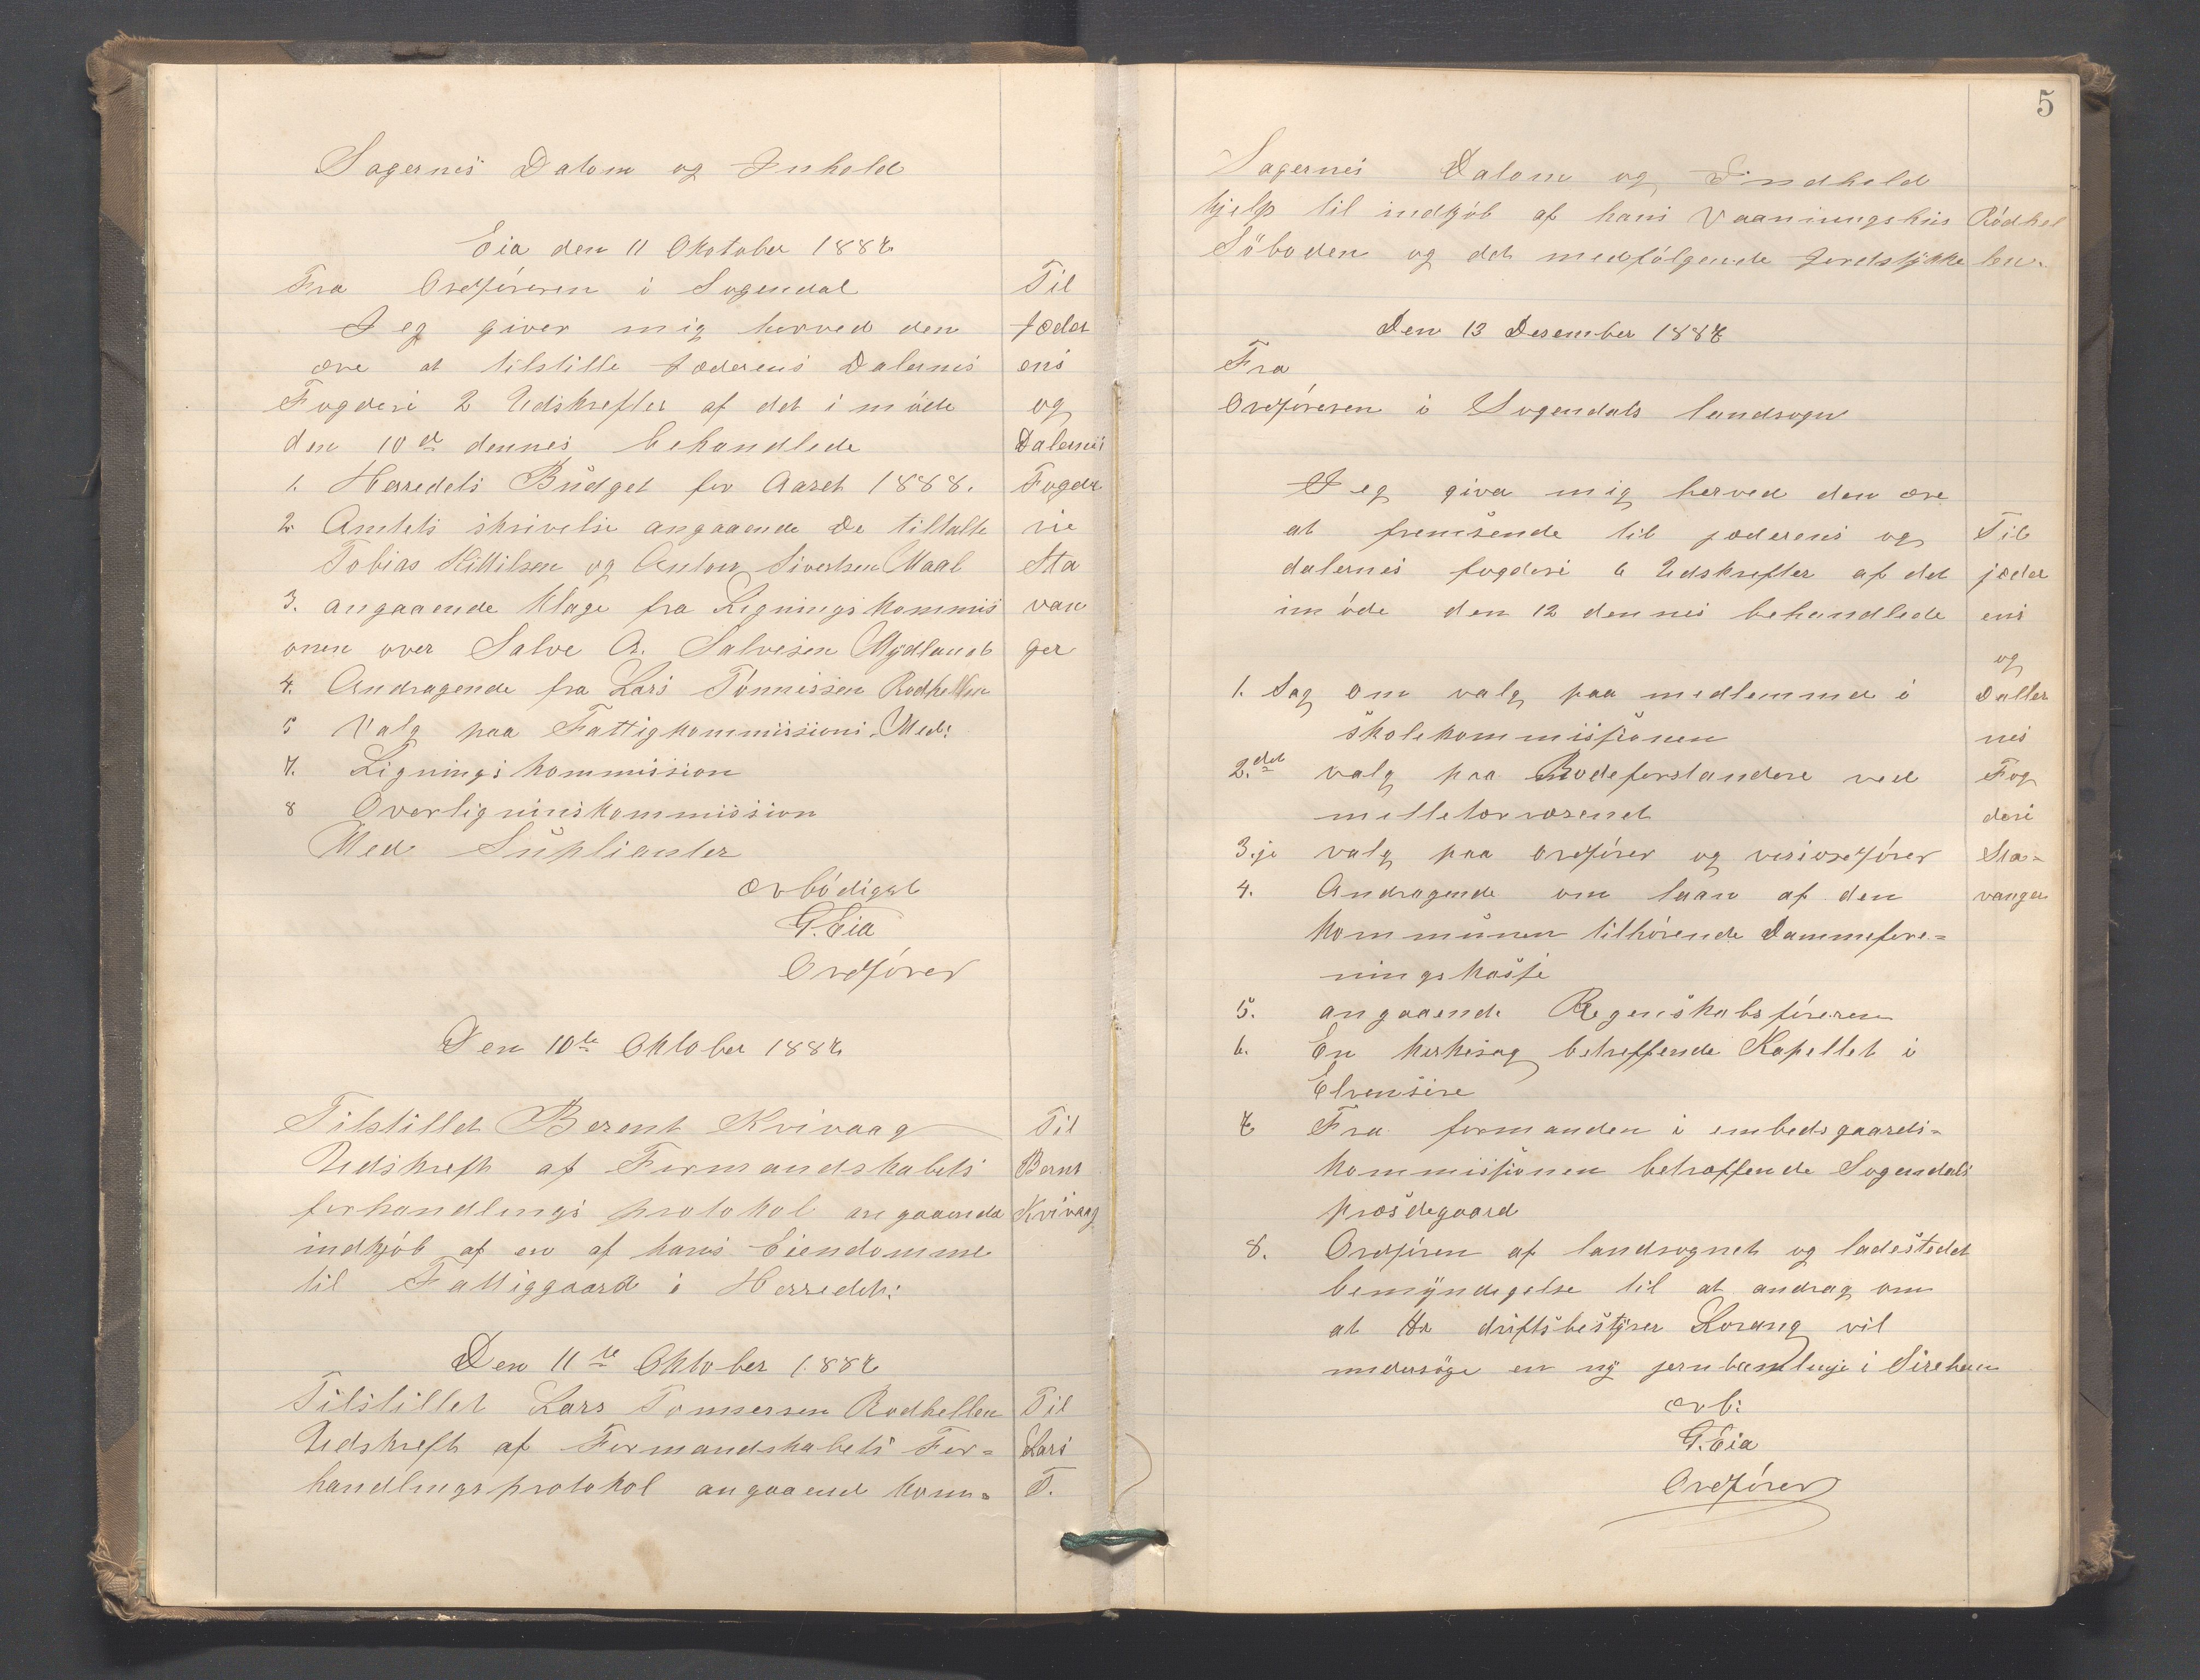 Sagernes Datom og Inhold
Eia den 11 Oktober 1887
Fra Ordføreren i Sogendal
Til
Jeg giver mig herved den
Jæder
ære at tilstille Jæderens Dalernes
ens
Fogderi 2 Udskrefter af det i møde
og
den 10de dennes behandlede
Dalernes
1. Herredets Budget for Aaret 1888.
Fogde
2 Amtets skrivelse angaaende De tiltalte
rie
Tobias Kittilsen og Anton Sivertsen Maal
Sta
3. angaaende Klage fra Lignings kommis
van
onen over Salve A. Salvesen Mydland
ger
4. Andragende fra Lars Tønnissen Rødhellen
5 Valg paa Fattigkommissions Med:
7. Lignings kommission
8 Overligninskommission
Med Suplianter
ærbødigst
G. Eia
Ordfører
Den 10de Oktober 1887
Tilstillet Berent Kvivaag
Til
Udskreft af Formandskabets
Bernt
forhandlings protokol angaaende
Kvivaag
indkjøb af en af hans Eiendomme
til Fattiggaard i Herredet:
Den 11te Oktober 1887
Tilstillet Lars Tonnersen Rodhellen
Til
Udskreft af Formandskabets For=
Lars
handlings protokol angaaend kom=
T.
5
Sagernes Datom og Indhold
hjelp til indkjøb af hans Vaaningshus
Rødhel
Søboden og det medfølgende Jordstykke
len.
Den 13 Desember 1887
Fra
Ordføreren i Sogendals landsogn
Jeg giver mig herved den ære
at fremsende til jæderens og
Til
dalernes fogderi 6 Udskrefter af det
jæder
i møde den 12 dennes behandlede
ens
og
1. Sag om valg paa medlemmer i
Daller
skolekommissionen
nes
2.det valg paa Rodeforstandere ved
Fog
milletærvæsenet
deri
3.je valg paa ordfører og viseordfører
Sta=
4. Andragende om laan af den
vanger
kommunen tilhørende Dammefore=
ningskasse
5. angaaende Regenskabsføreren
6. En kirkesag betreffende Kapellet i
7 Fra formanden i embedsgaards=
kommissionen betræffende Sogendals
præstegaard
8. Ordføren af landsognet og ladestedet
bemyndegelse til at andrag om
at Hr driftsbestyrer Lorang vil
undersøge en ny jernbanelinje i Sireheien
ærb:
G. Eia
Ordfører